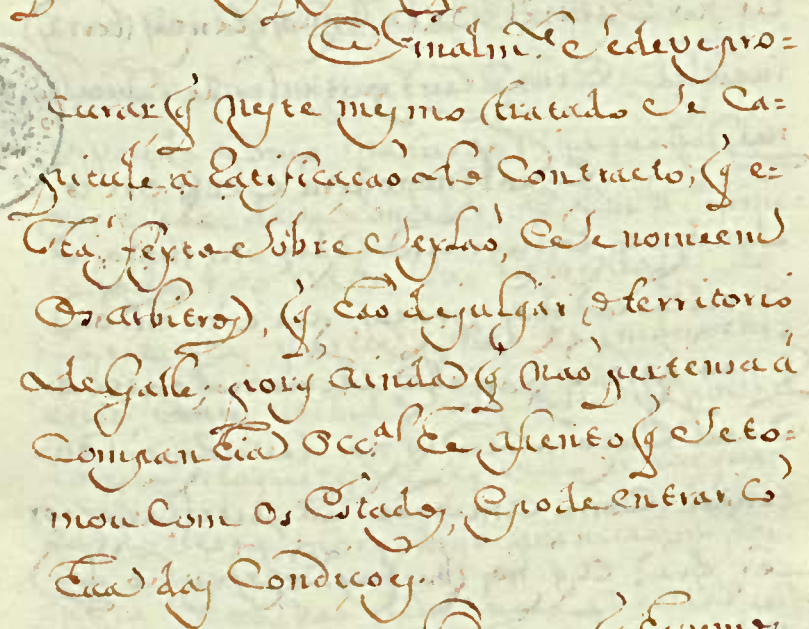 Finalm.te Se deve pro=
curar q̃ neste mesmo tratado Se Ca=
pitule a Ratificacaõ do Contracto, q̃ e=
stá feyto Sobre Ceylaõ, e Se nomeem
Os Arbitros, q̃ haõ de julgar o territorio
de Galle, porq̃ ainda q̃ naõ pertensa á
Companhia Occ.al he asiento q̃ Se to=
mou Com Os Estados, e pode entrar Co
hũa das Condicoẽs.